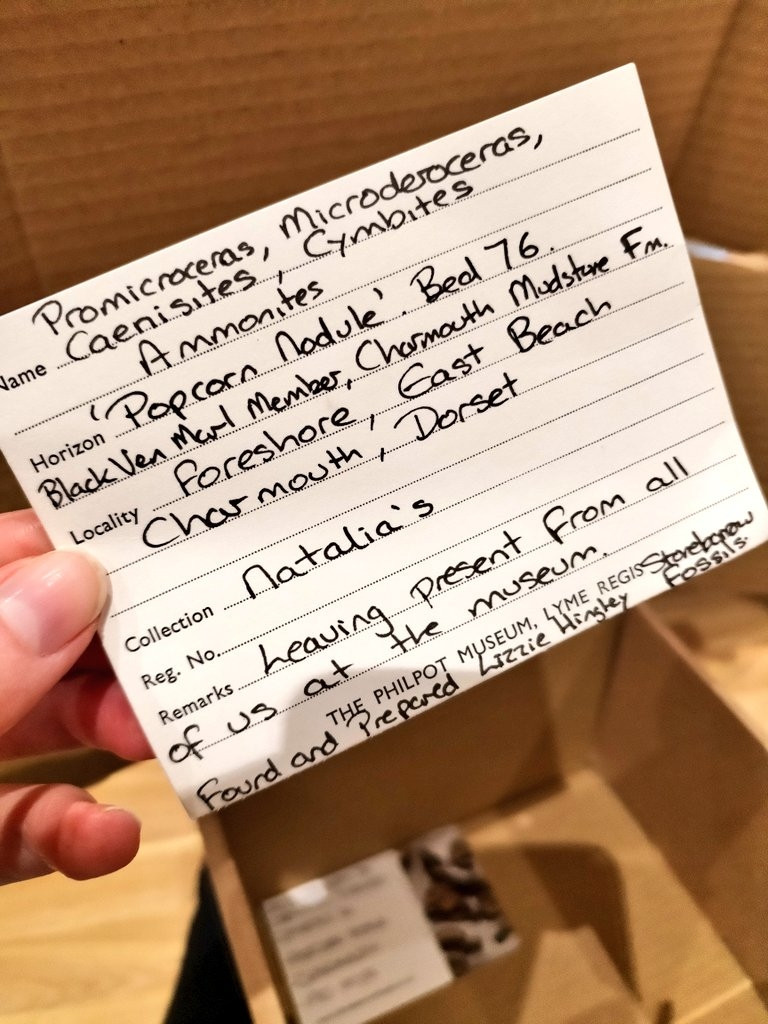 Promicroceras, Microderoceras,
Name Caenisites, Cymbites
Ammonites
Horizon 'Popcorn Nodule'. Bed 76.
Black Ven Marl Member, Charmouth Mudstone Fm.
Locality Foreshore, East Beach
Charmouth, Dorset
Collection Natalia's
Reg. No.
Remarks Leaving present from all
of us at the museum.
THE PHILPOT MUSEUM, LYME REGIS
Found and Prepared Lizzie Hingley Stonebarrow
Fossils.